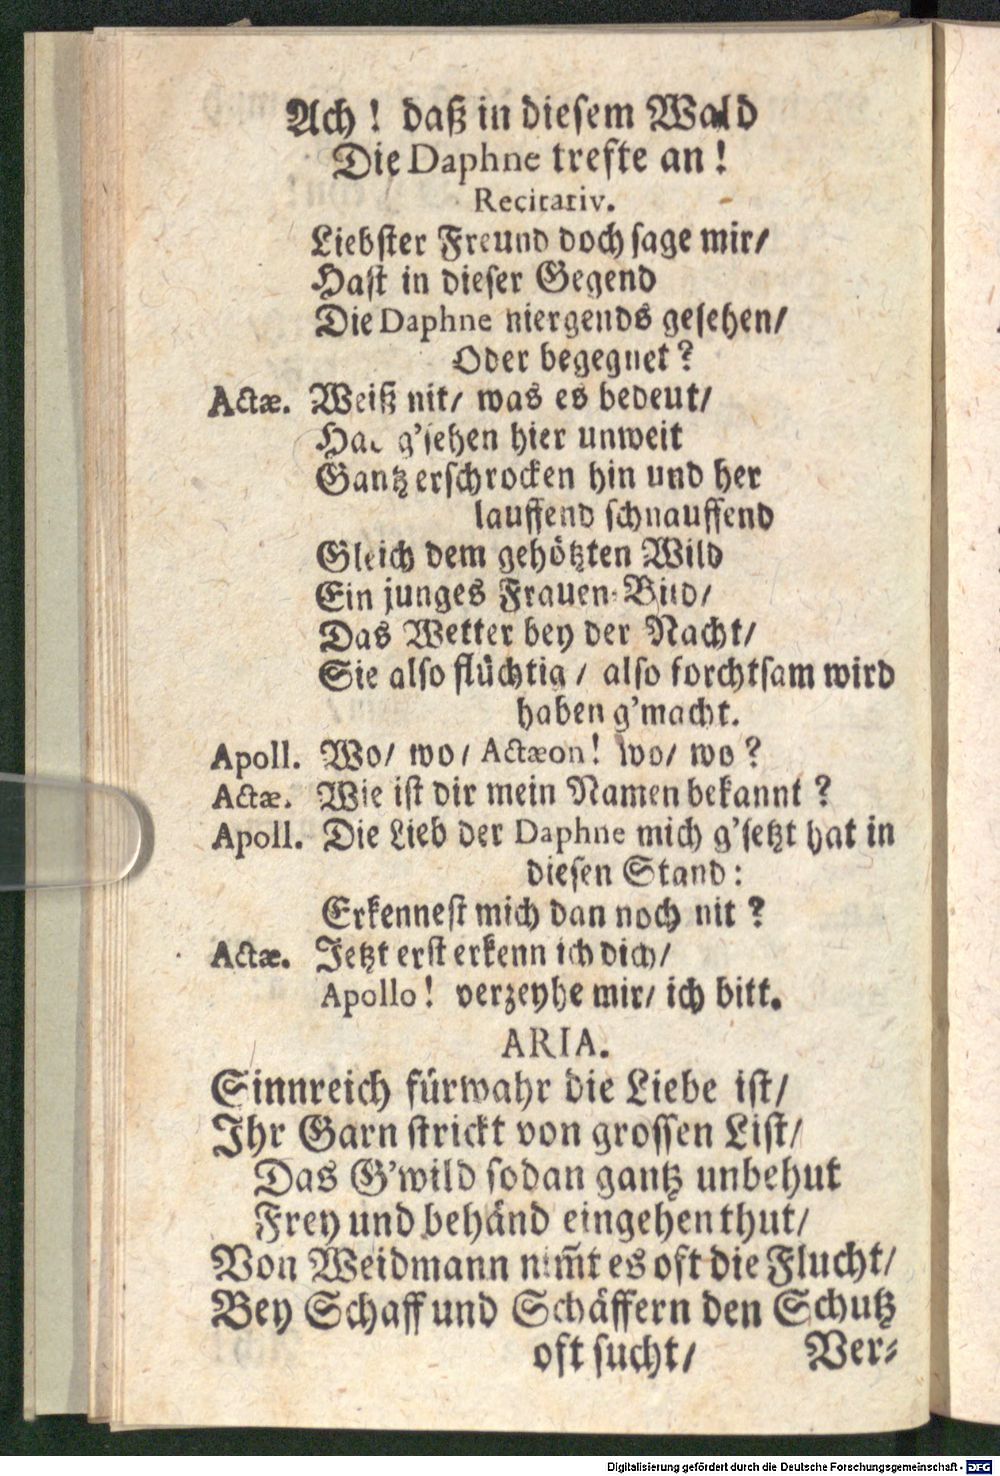 Ach! daß in diesem Wald
Die Daphne trefte an!
Recitativ.
Liebster Freund doch sage mir/
Hast in dieser Gegend
Die Daphne niergends gesehen/
Oder begegnet?
Actæ. Weiß nit/ was es bedeut/
Hab g'sehen hier unweit
Gantz erschrocken hin und her
lauffend schnauffend
Gleich dem gehötzten Wild
Ein junges Frauen-Bild/
Das Wetter bey der Nacht/
Sie also flüchtig/ also forchtsam wird
haben g'macht.
Apoll. Wo/ wo/ Actæon! wo/ wo?
Actæ. Wie ist dir mein Namen bekannt?
Apoll. Die Lieb der Daphne mich g'setzt hat in
diesen Stand:
Erkennest mich dan noch nit?
Actæ. Jetzt erst erkenn ich dich/
Apollo! verzeyhe mir/ ich bitt.
ARIA.
Sinnreich fürwahr die Liebe ist/
Ihr Garn strickt von grossen List/
Das G'wild sodan gantz unbehut
Frey und behänd eingehen thut/
Von Weidmann nim̃t es oft die Flucht/
Bey Schaff und Schäffern den Schutz
oft sucht/ Ver-
Digitalisierung gefördert durch die Deutsche Forschungsgemeinschaft - DFG